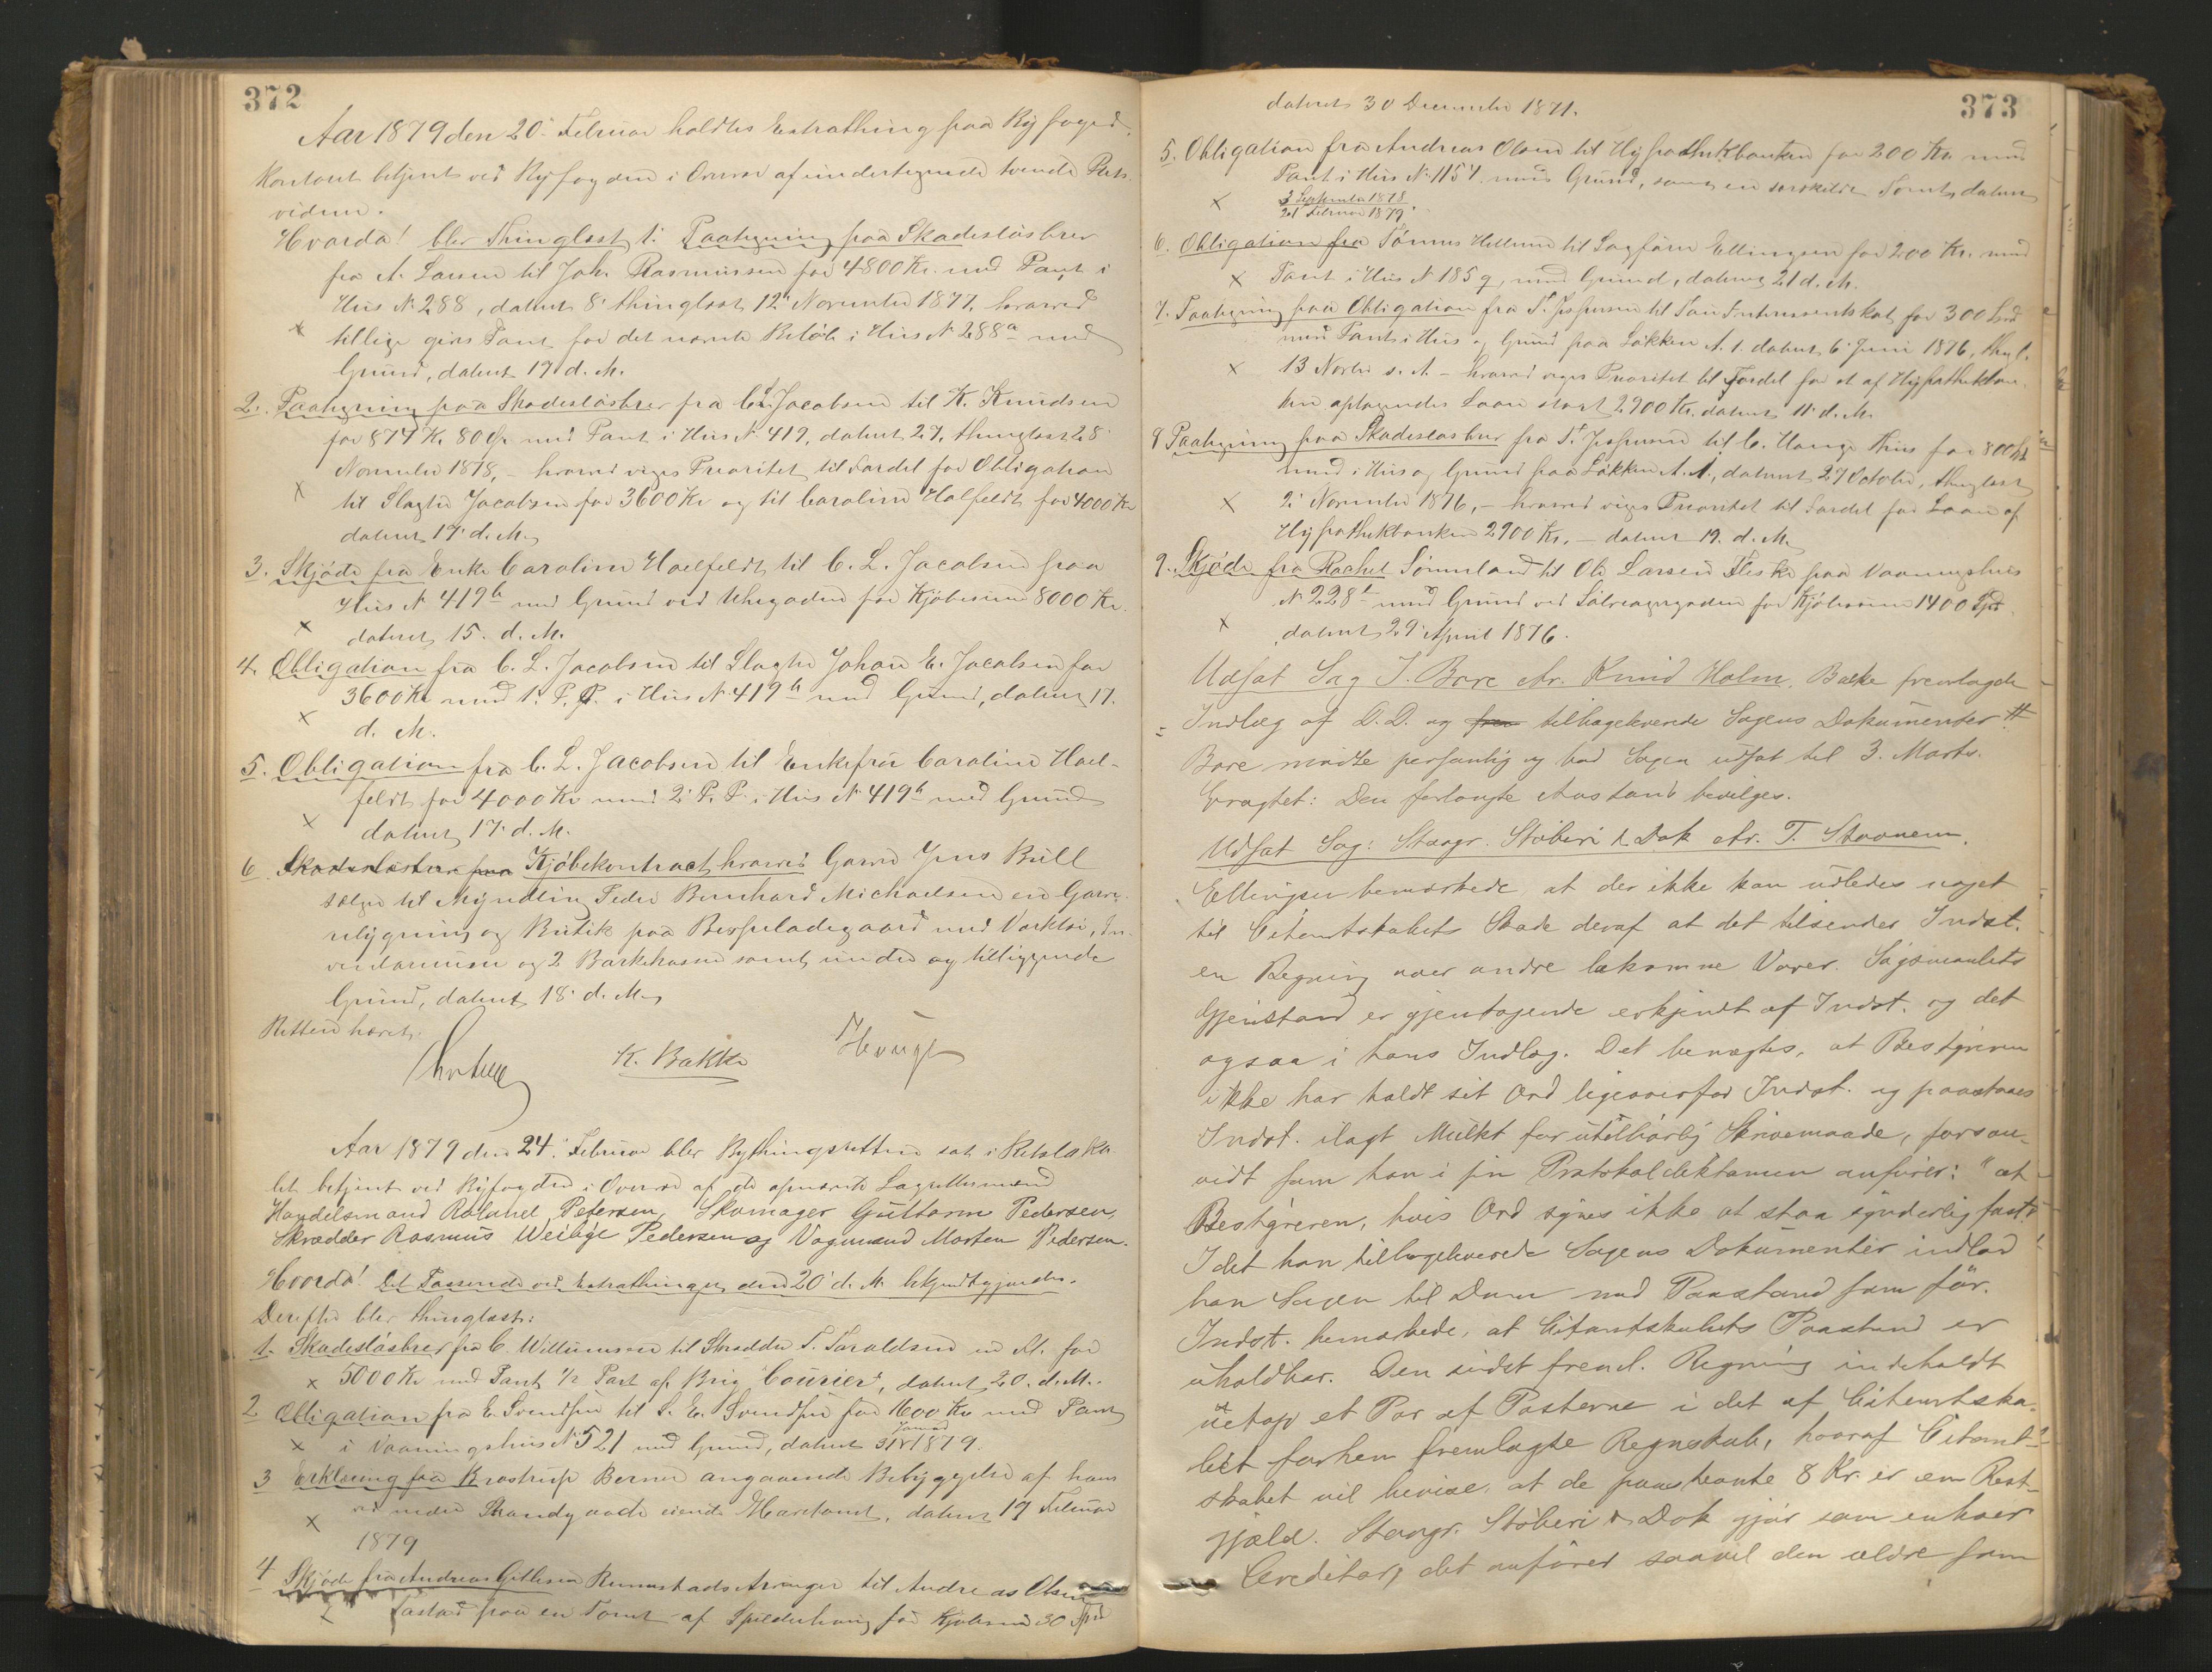 372
Aar 1879 den 20' Februar holdtes Extrathing paa Byfoged
Kontoret betjent ved Byfogden i Overvær af undertegnede tvende Rets
vidner.
Hvorda! blev thinglæst 1: Paategning paa Skadesløsbrev
fra A. Larsen til Johs Rasmussen for 4800 Kr. med Pant i
Hus N. 288, dateret 8' thinglæst 12' November 1877, hvorved
x tillige gives Pant for det nævnte Beløb i Hus N 288a med
Grund, dateret 19 d. M.
2. Paategning paa Skadesløsbrev fra C. L. Jacobsen til K. Knudsen
for 874 Kr 80 Øre med Pant i Hus N. 419, dateret 27, thinglæst 28
November 1878, – hvorved viges Prioritet til Fordel for Obligation
x til Slagter Jacobsen for 3600 Kr og til Caroline Haelfeldt for 4000 Kr
dateret 17' d. M.
3. Skjøde fra Enke Caroline Haelfeldt til C. L. Jacobsen paa
Hus N 419b med Grund ved for Kjøbesum 8000 Kr.
x dateret 15. d. M.
4. Obligation fra C. L. Jacobsen til Slagter Johan E. Jacobsen for
3600 Kr med 1. P. P. i Hus N. 419b med Grund, dateret 17.
x d. M.
5. Obligation fra C. L. Jacobsen til Enkefru Caroline Hael-
feldt for 4000 Kr med 2' P. P. i Hus N 419b med Grund
x dateret 17' d. M.
6 Skadesløsbrev fra Kjøbekontract hvorved Garver Jens Bull
sælger til Myndling Peder Bernhard Michaelsen en Garver-
bygning og Butik paa med Værktøi, In-
ventarium og 2 Barkekasser samt under og tilliggende
Grund, dateret 18' d. M.
Retten hævet.
K. Bakke Hauge
Aar 1879 den 24' Februar blev Bythingsretten sat i Retsloka-
let betjent ved Byfogden i Overvær af de opnævnte Laugrettesmænd
Handelsmand Roland Petersen, Skomager Guttorm Pedersen,
Skrædder Rasmus Weiby Pedersen og Vognmand Morten Pedersen.
Hvorda! Det Passerede ved Extrathinget den 20' d. M. bekjendtgjordes.
Derefter blev thinglæst:
1. Skadesløsbrev fra C. Willumsen til Skrædder T. Taraldsen m. Fl. for
x 5000 Kr med Pant 1/2 Part af Brig "Courier", dateret 20. d. M.
2 Obligation fra E. Svendsen til S. E. Svendsen for 1600 Kr med Pant
x i Vaaningshus N. 521 med Grund, dateret 31 Januar 1879.
3 Erklæring fra Krastrup Berner angaaende Bebyggelse af hans
x ved nedre Strandgade eiende , dateret 17 Februar
1879
4 Skjøde fra Andreas Gitlesen Rennestads Arvinger til Andreas Olsen
x Tastad paa en Tomt af Spilderhaug for Kjøbesum 30 Spd
373
dateret 30 December 1871.
5. Obligation fra Andreas Olsen til Hypothekbanken for 200 Kr. med
Pant i Hus N. 1154 med Grund, samt en særskilt Tomt, dateret
x 3 September 1878
21 Februar 1879.
6. Obligation fra Tønnes Hellund til Sagfører Ellingsen for 200 Kr. med
x Pant i Hus N 185q, med Grund, dateret 21 d. M.
7. Paategning paa Obligation fra T. Jespersen til for 300 Spd
med Pant i Hus og Grund paa Løkken A. 1. dateret 6' Juni 1876, thgl.
x 13 Novbr s. A. – hvorved viges Prioritet til Fordel for et af Hypothekban-
ken optagendes Laan stort 2900 Kr. dateret 11' d. M.
8 Paategning paa Skadesløsbrev fra T. Jespersen til C. Hauge Thiis for 800 Spd
med i Hus og Grund paa Løkken A. 1., dateret 27 October, thinglæst
x 2' November 1876, – hvorved viges Prioritet til Fordel for Laan af
Hypothekbanken 2900 Kr. – dateret 19. d. M.
9. Skjøde fra Rachel Sømmeland til Ole Larsen Fiske paa Vaaningshus
N. 228 med Grund ved for Kjøbesum 1400 Spd
x dateret 29' April 1876.
Udsat Sag J. Bore Ar. Knud Holm. Bakke fremlagde
Indlæg af D. D. og frem tilbageleverede Sagens Dokumenter #
Bore mødte personlig og bad Sagen udsat til 3. Marts.
Eragtet: Den forlangte Anstand bevilges.
Udsat Sag: Stavgr. Støberi & Dok Ar. T. Stavnem.
Ellingsen bemærkede at der ikke kan udledes noget
til Citantskabets Skade deraf at det tilsender Indst.
en Regning over andre bekomne Varer. Søgsmaalets
Gjenstand er gjentagende erkjendt af Indst. og det
ogsaa i hans Indlæg. Det benægtes, at Bestyreren
ikke har holdt sit Ord ligeoverfor Indst. og paastaaes
Indst. ilagt Mulkt for utilbørlig Skrivemaade, forsaa-
vidt som han i sin Protokoldiktamen anfører: "at
Bestyreren, hvis Ord synes ikke at staa synderlig fast."
Idet han tilbageleverede Sagens Dokumenter indlod
han Sagen til Dom med Paastand som før.
Indst. bemærkede, at Citantskabets Paastand er
uholdbar. Den sidst freml. Regning indeholdt
netop et Par af Posterne i det af Citantska-
bet forhen fremlagte Regnskab, hvoraf Citant-
skabet vil bevise, at de paastævnte 8 Kr. er en Rest-
gjæld. Stavgr. Støberi & Dok gjør som enhver
Creditor, det anfører saavel den ældre som